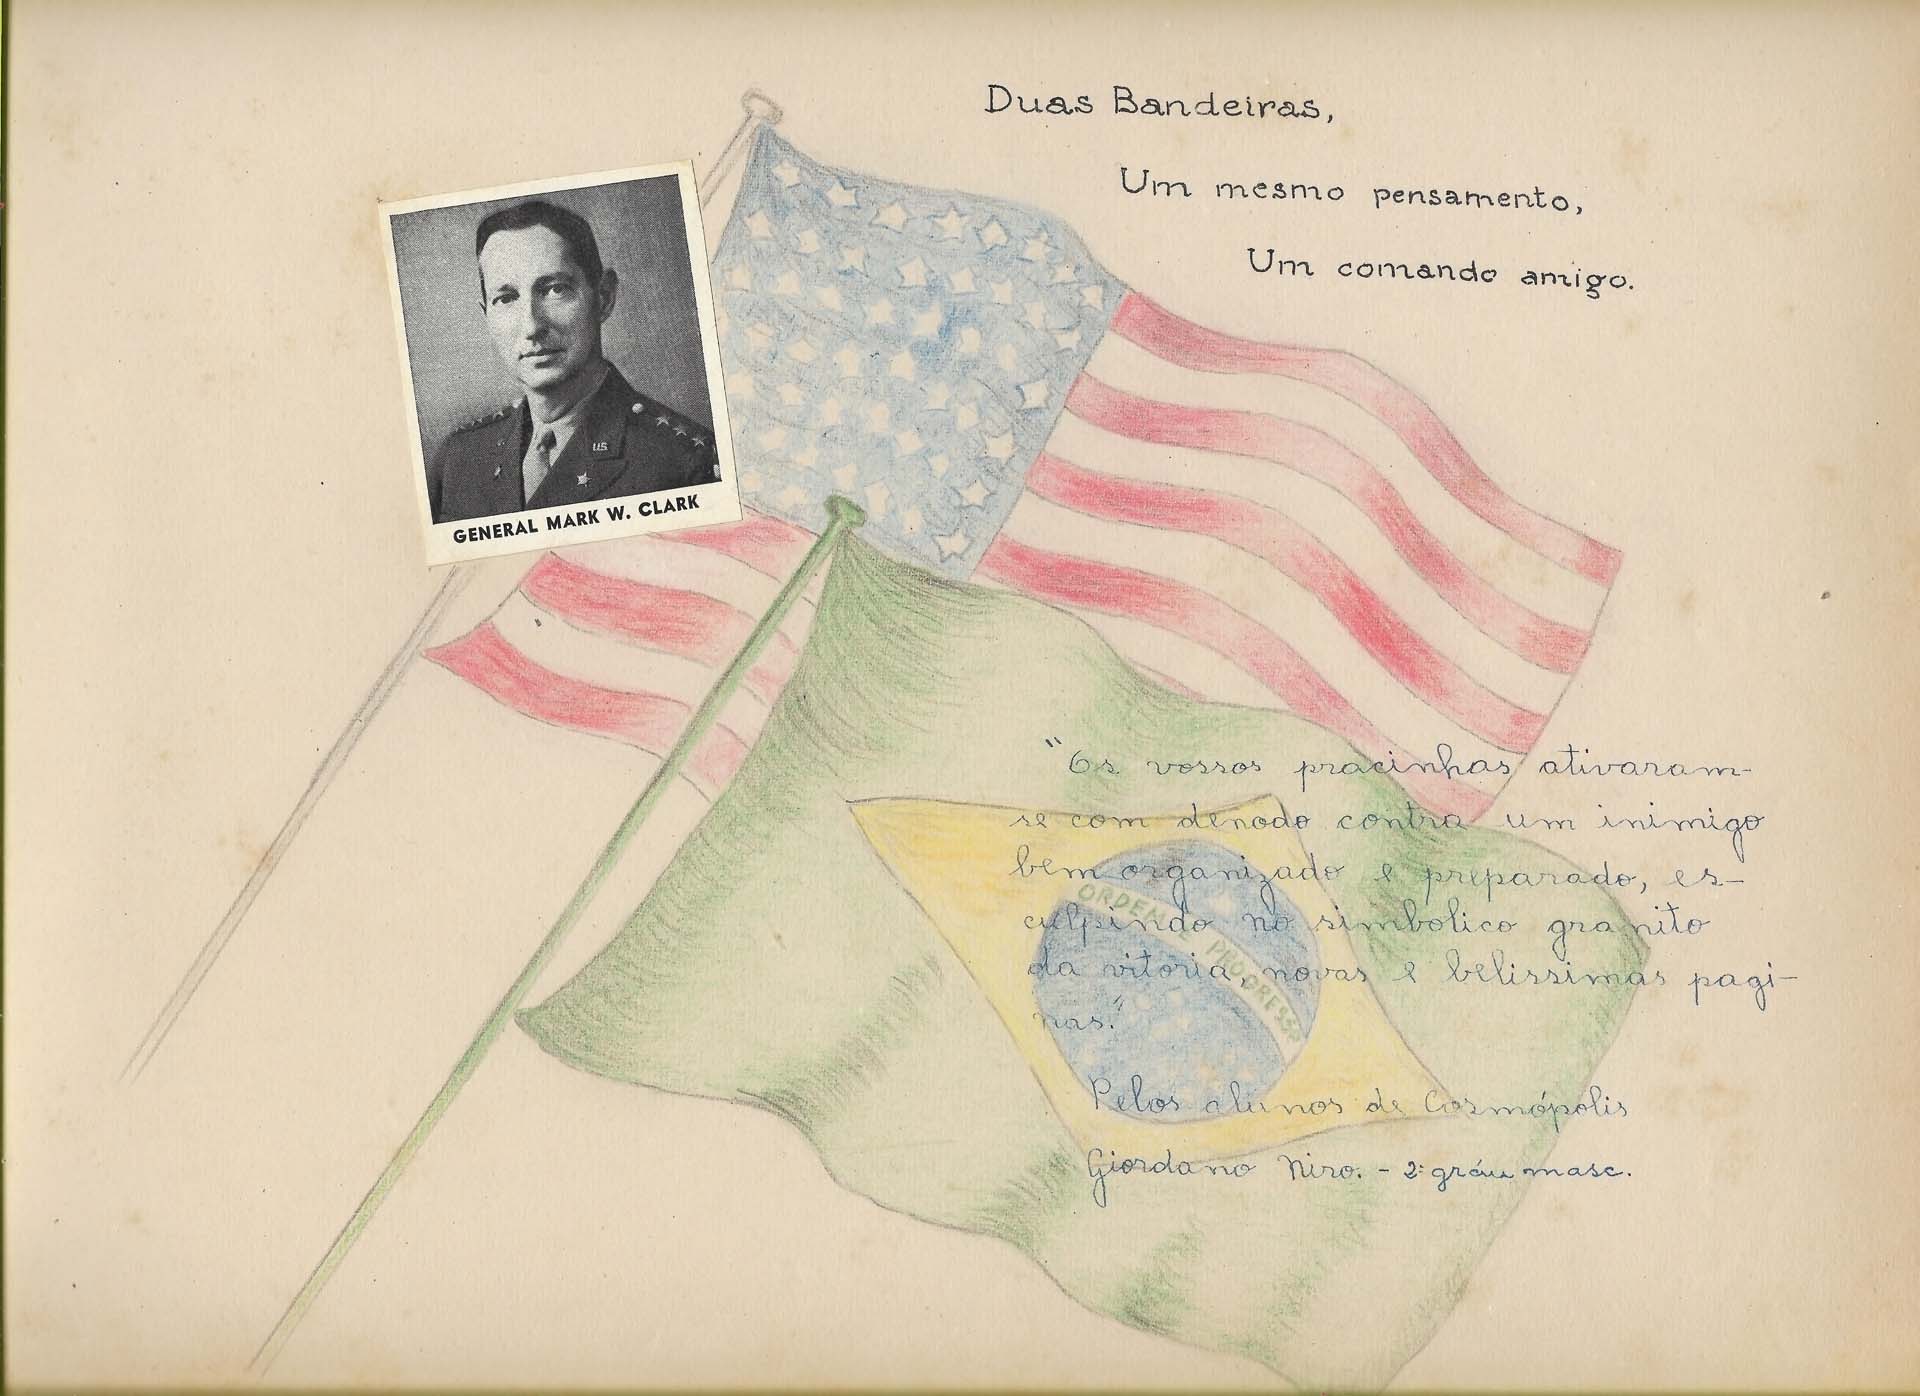 Duas Bandeiras,
Um mesmo pensamento,
Um comando amigo.
GENERAL MARK W. CLARK
U.S.
"Os vossos pracinhas ativaram-
se com denodo contra um inimigo
bem organizado e preparado, es-
culpindo no simbolico granito
da vitoria, novas e belissimas pagi-
nas."
ORDEM E PROGRESSO
Pelos alunos de Cosmópolis
Giordano Niro. - 2º gráu masc.